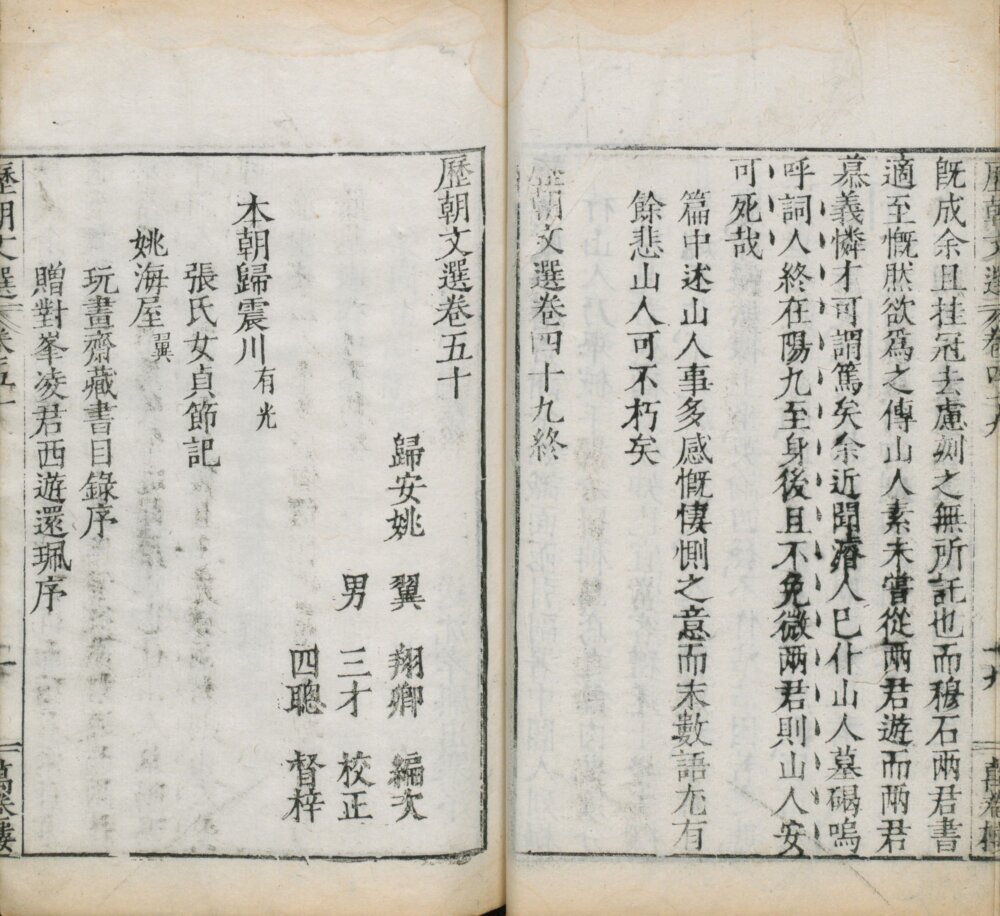 歷朝文選 卷四十九
十九
萬卷樓
旣成余且挂冠去慮刻之無所託也而穆石兩君書
適至慨肰欲爲之傳山人素未嘗從兩君遊而兩君
慕義憐才可謂篤矣余近聞濬人已仆山人墓碣嗚
呼詞人終在陽九至身後且不免微兩君則山人安
可死哉
篇中述山人事多感慨悽惻之意而末數語尤有
餘悲山人可不朽矣
歷朝文選卷四十九終
歷朝文選卷五十
歸安姚　翼　翔卿　編次
男　三才　校正
四聰　督梓
本朝歸震川有光
張氏女貞節記
姚海屋翼
玩畫齋藏書目錄序
贈對峯凌君西遊還珮序
歷朝文選 卷五十
一
萬卷樓